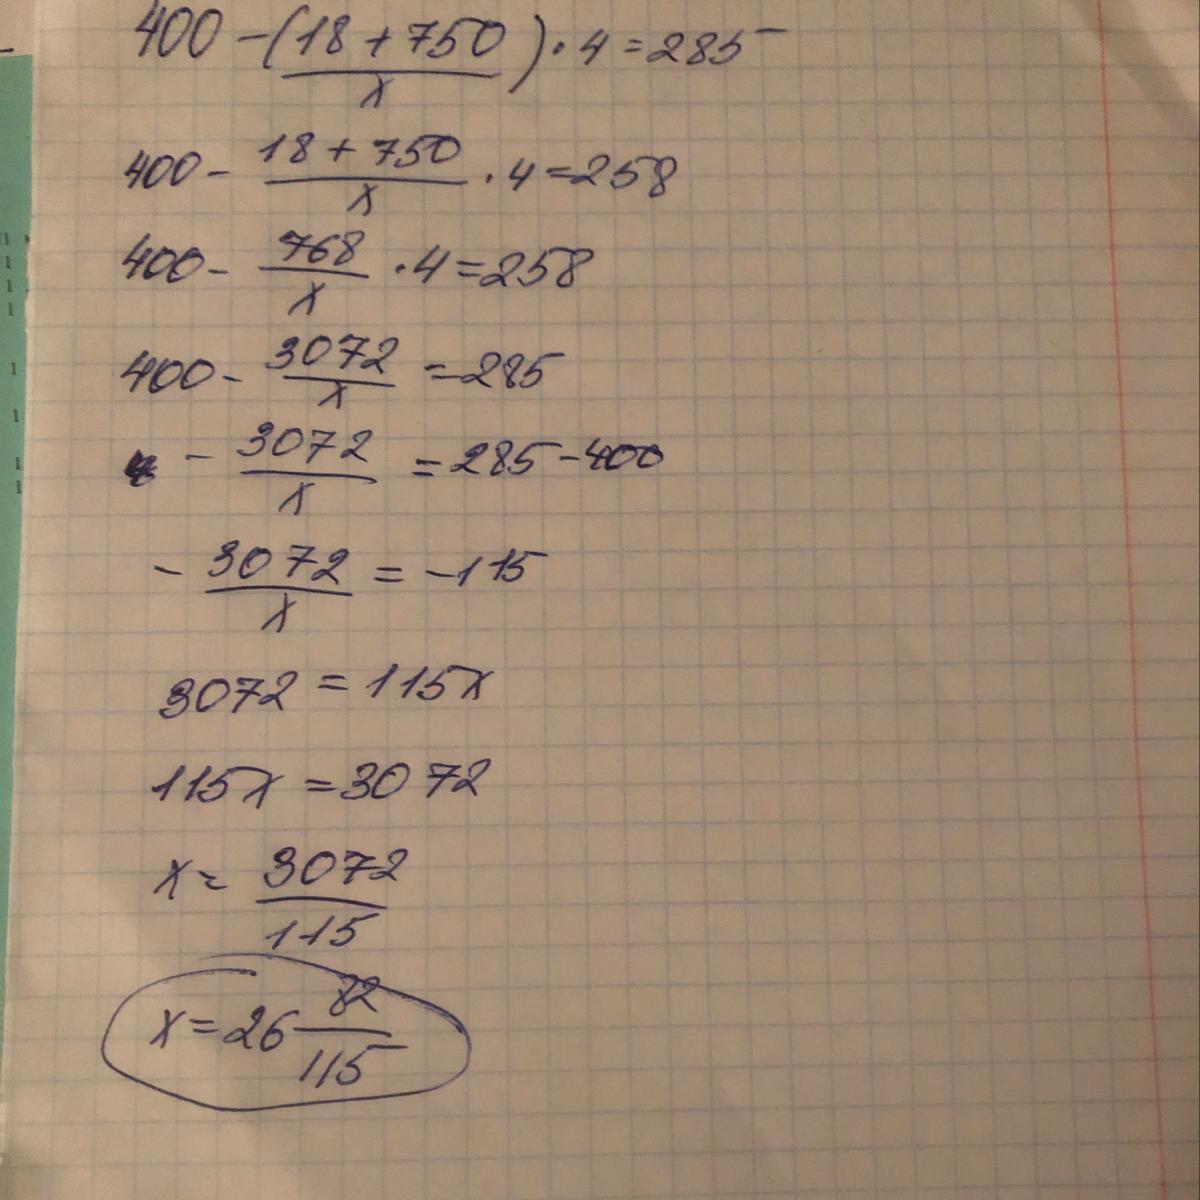 400 - (18 + 750 / x) · 4 = 285
400 - 18 + 750 / x · 4 = 258
400 - 768 / x · 4 = 258
400 - 3072 / x = 285
- 3072 / x = 285 - 400
- 3072 / x = -115
3072 = 115x
115x = 3072
x = 3072 / 115
x = 26 82 / 115